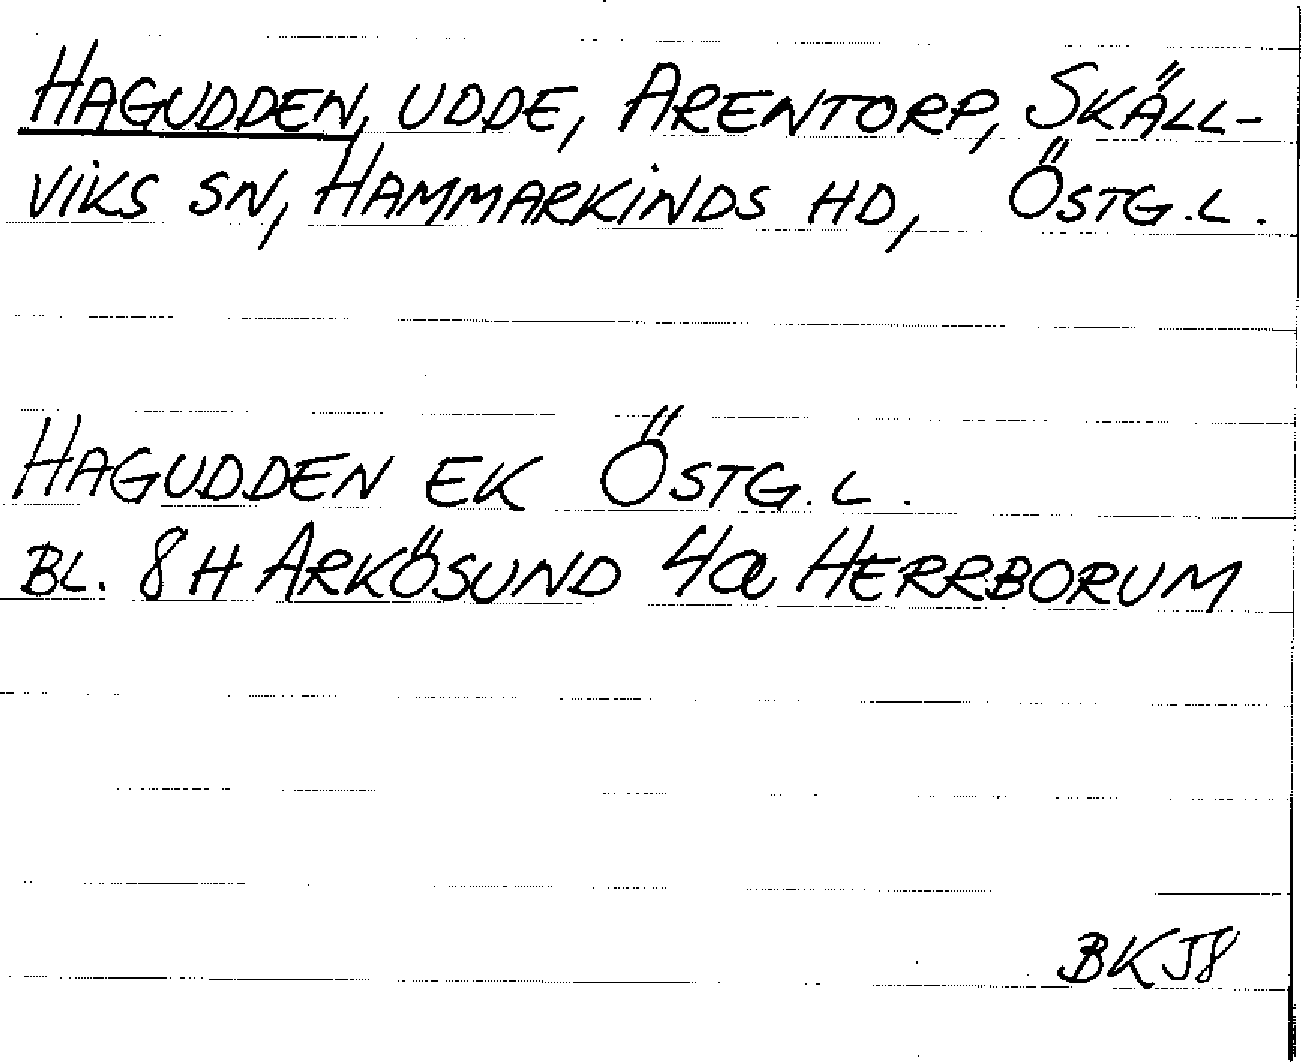 HAGUDDEN, UDDE, ARENTORP, SKÄLL-
VIKS SN, HAMMARKINDS HD, ÖSTG.L.
HAGUDDEN EK ÖSTG.L.
BL. 8H ARKÖSUND 4a HERRBORUM
BKJ8